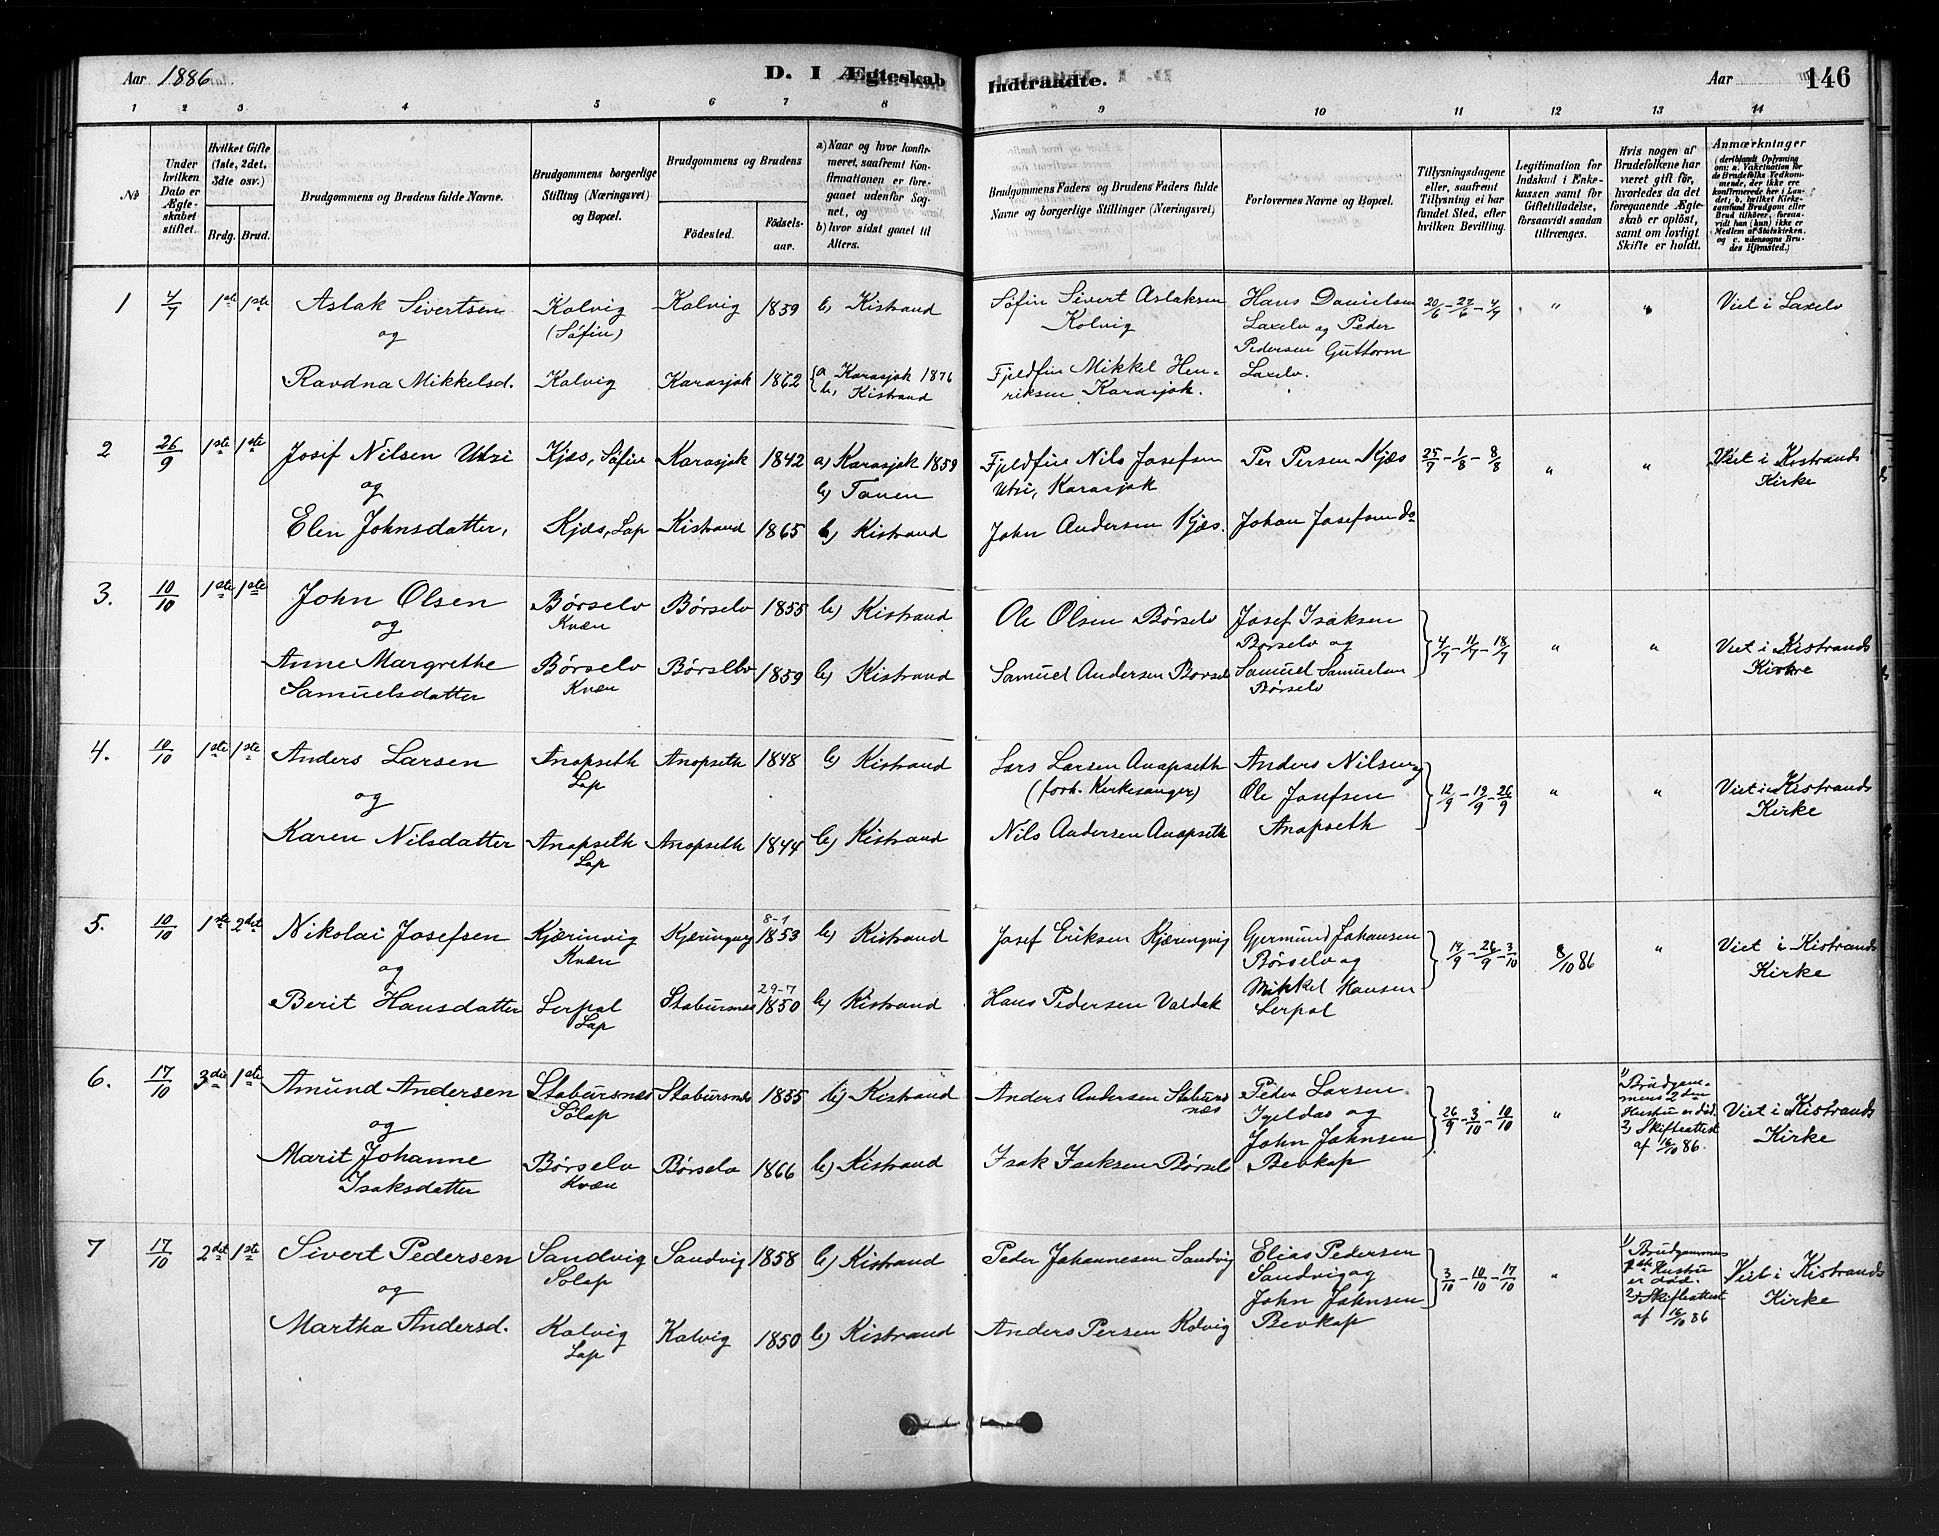 Aar 1886
D. I Ægteskab
Indtraadte.
Aar
146
1 2 3 4 5 6 7 8 9 10 11 12 13 14
No
Under hvilken Dato er Ægteskabet stiftet.
Hvilket Gifte (1ste, 2det, 3die osv.)
Brdg. Brud.
Brudgommens og Brudens fulde Navne.
Brudgommens borgerlige Stilling (Næringsvei) og Bopæl.
Brudgommens og Brudens
Fødested.
Fødselsaar.
a) Naar og hvor konfirmeret, saafremt Konfirmationen er foregaaet udenfor Sognet, og
b) hvor sidst gaaet til Alters.
Brudgommens Faders og Brudens Faders fulde Navne og borgerlige Stillinger (Næringsvei)
Forlovernes Navne og Bopæl.
Tillysningsdagene eller, saafremt Tillysning ei har fundet Sted, efter hvilken Bevilling.
Legitimation for Indskud i Enkekassen samt for Giftetilladelse, forsaavidt saadan tiltrænges.
Hvis nogen af Brudefolkene har været gift før, hvorledes da det foregaaende Ægteskab er opløst, samt om lovligt Skifte er holdt.
Anmærkninger
(deriblandt Oplysning om: a. Vakcination for de Brudefolks Vedkommende, der ikke ere konfirmerede her i Landet; b. hvilket Kirkesamfund Brudgom eller Brud tilhører, forsaavidt han (hun) ikke er Medlem af Statskirken, og c. udensogns Brudes Hjemsted.)
1 4/7 1ste 1ste Aslak Sivertsen Kolvig Kolvig 1859 b) Kistrand Søfin Sivert Aslaksen Hans Danielsen 20/6 - 27/6 - 4/7 " " Viet i Laxelv
og (Søfin) Kolvig Laxelv og Peder
Pedersen Guttorm
Ravdna Mikkelsd. Kolvig Karasjok 1862 a Karasjok 1876 Fjeldfin Mikkel Hen- Laxelv.
b, Kistrand riksen Karasjok.
2 26/9 1ste 1ste Josif Nilsen Utsi Kjæs, Søfin Karasjok 1842 a) Karasjok 1859 Fjeldfin Nils Josefsen Per Persen Kjæs 25/7 - 1/8 - 8/8 " " Viet i Kistrands
og b) Tanen Utsi, Karasjok Kirke
Elen Johnsdatter, Kjæs, Lap Kistrand 1865 b) Kistrand John Andersen Kjæs. Johan Josefsen do
3. 10/10 1ste 1ste John Olsen Børselv Børselv 1855 b) Kistrand Ole Olsen Børselv Josef Isaksen 4/7 - 11/7 - 18/7 " " Viet i Kistrands
og Kvæn Børselv og Kirke
Anne Margrethe Børselv Børselv 1859 b) Kistrand Samuel Andersen Børselv Samuel Samuelsen
Samuelsdatter Kvæn Børselv
4. 10/10 1ste 1ste Anders Larsen Anopseth Anopseth 1848 b) Kistrand Lars Larsen Anopseth Anders Nilsen og 12/9 - 19/9 - 26/9 " " Viet i Kistrands
og Lap (forh. Kirkesanger) Ole Josefsen Kirke
Karen Nilsdatter Anopseth Anopseth 1844 b) Kistrand Nils Andersen Anopseth Anopseth
Lap
5. 10/10 1ste 2det Nikolai Josefsen Kjærinvig Kjæringvig 8-1 1853 b) Kistrand Josef Eriksen Kjæringvig Gjermund Johansen 19/9 - 26/9 - 3/10 8/10 86 " Viet i Kistrands
og Kvæn Børselv og Kirke
Berit Hansdatter Lerpol Stabursnes 29-7 1850 b) Kistrand Hans Pedersen Valdak Mikkel Hansen
Lap Lerpol
6. 17/10 3die 1ste Amund Andersen Stabursnes Stabursnes 1855 b) Kistrand Anders Andersen Stabursnæs Peder Larsen 26/9 - 3/10 - 10/10 " 1) Brudgommens 2den Hustru er død. 2) Skifteattest af 16/10 86. Viet i Kistrands
og Sølap Igeldas og Kirke
Marit Johanne Børselv Børselv 1866 b) Kistrand Isak Isaksen Børselv John Johnsen
Isaksdatter Kvæn Bevkap
7 17/10 2det 1ste Sivert Pedersen Sandvig Sandvig 1858 b) Kistrand Peder Johannesen Sandvig Elias Pedersen 3/10 - 10/10 - 17/10 " 1) Brudgommens 1ste Hustru er død. 2) Skifteattest af 16/10 86 Viet i Kistrands
og Sølap Sandvig og Kirke
Martha Andersd. Kolvig Kolvig 1850 b) Kistrand Anders Persen Kolvig John Johnsen
Lap Bevkap